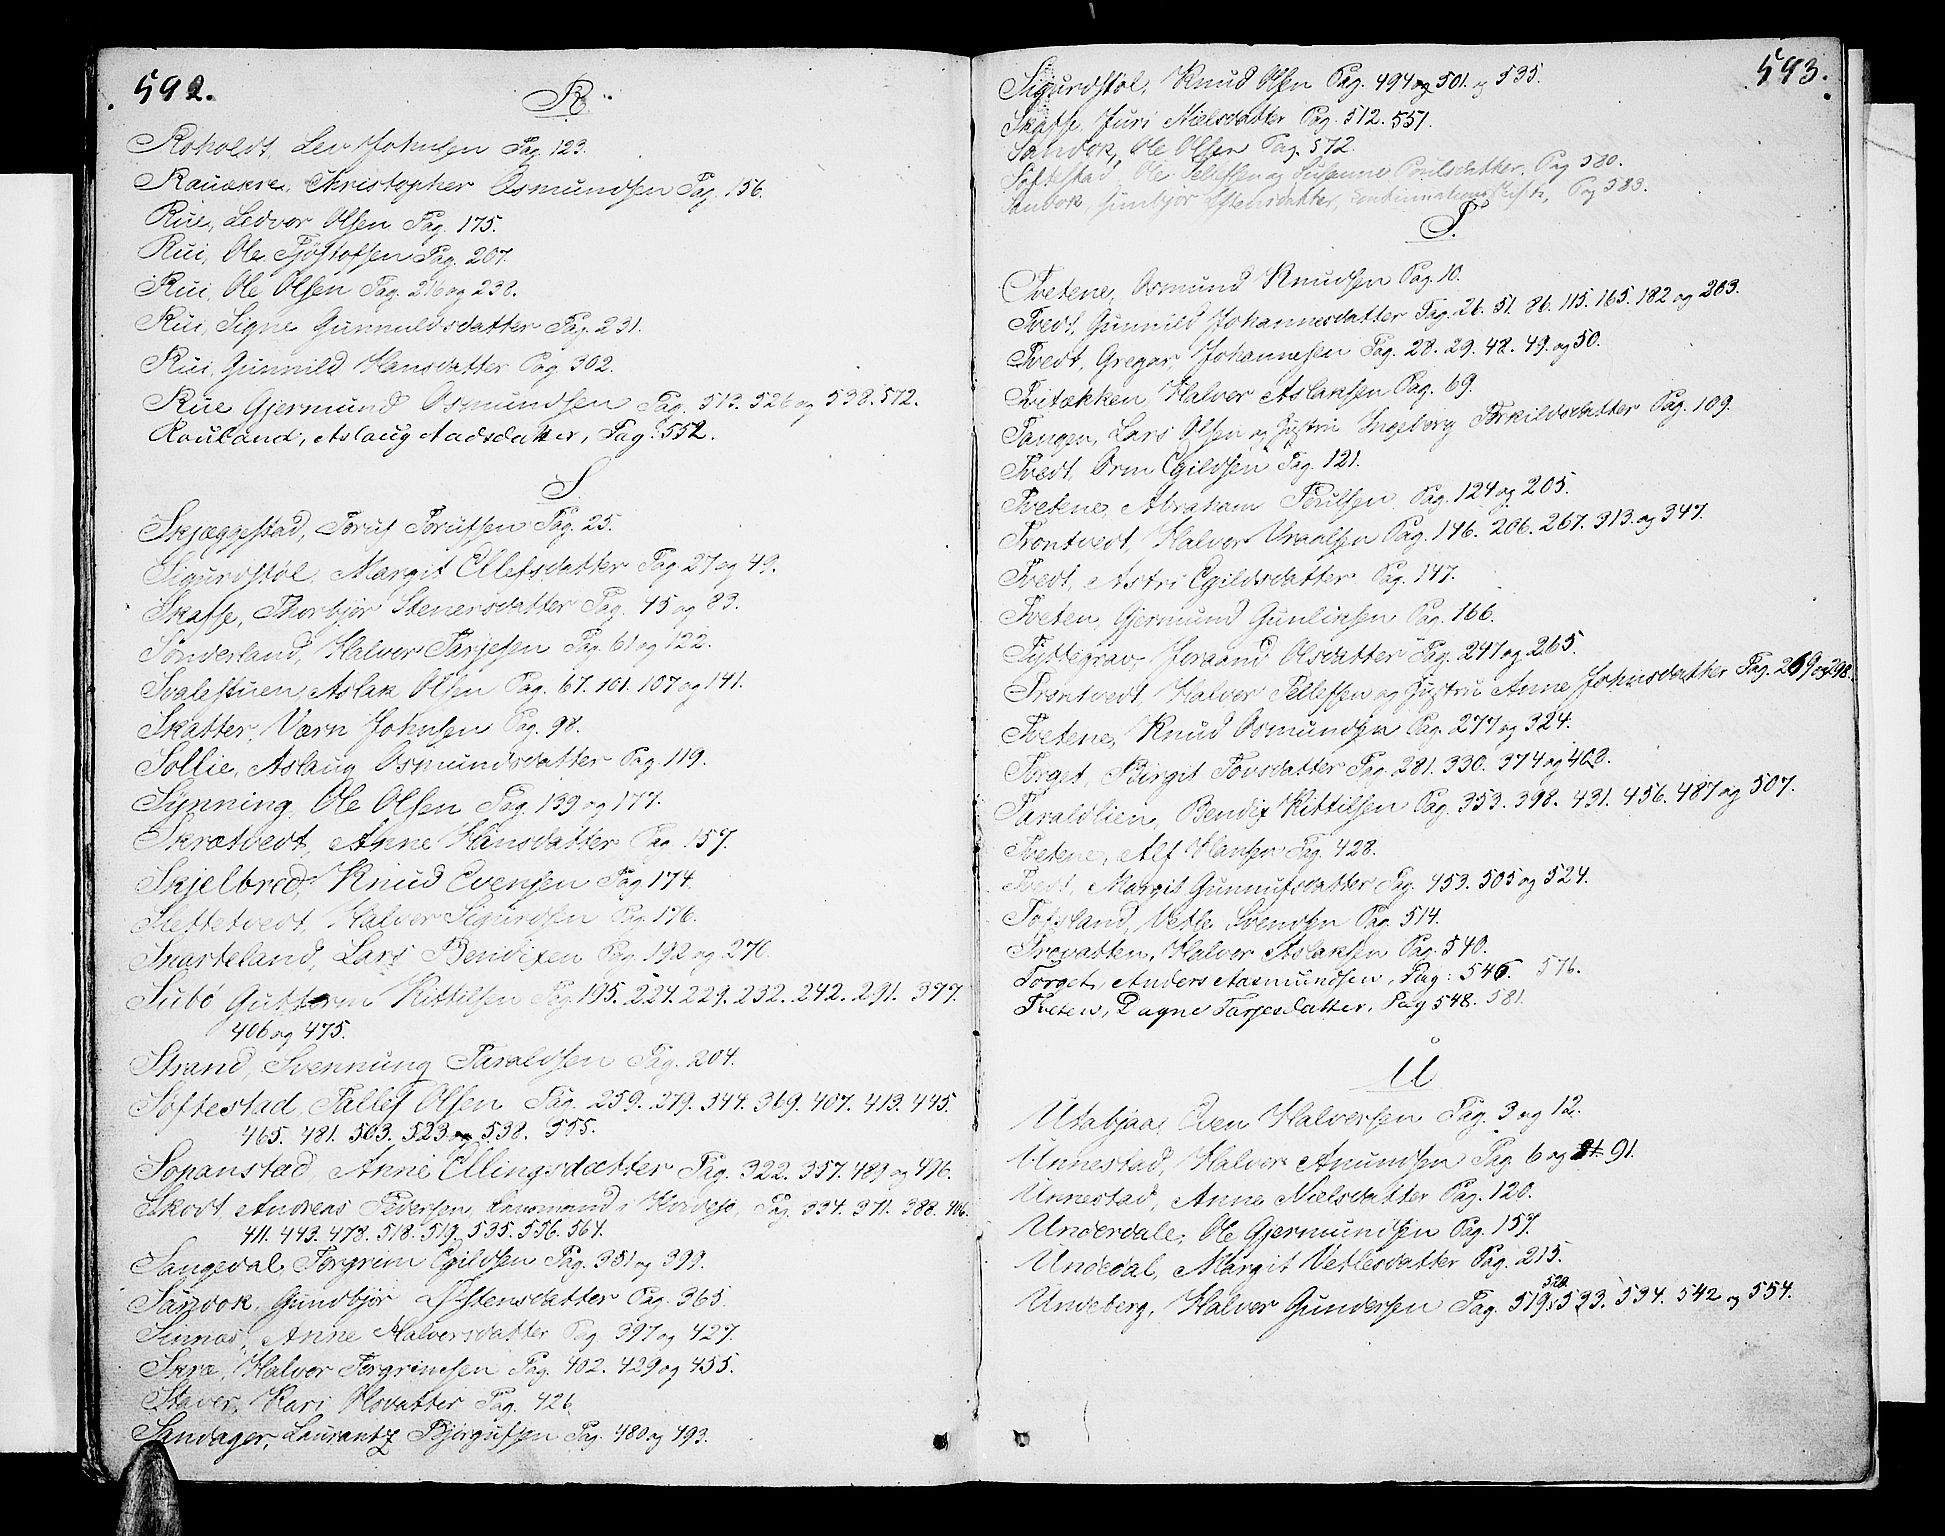 592.
R.
Roholdt, Lev Johnsen Pag. 123.
Rauakre, Christopher Osmundsen Pag. 156.
Rue, Ledvor Olsen Pag. 175.
Rui, Ole Tjöstolfsen Pag. 207.
Rui, Ole Olsen Pag. 216 og 238.
Rui, Signe Gunnuldsdatter Pag. 231.
Rui, Gunnild Hansdatter Pag. 302.
Rue Gjermund Osmundsen Pag. 513. 526 og 538. 572.
Rouland, Aslaug Aadsdatter, Pag: 552.
S.
Skjæggestad, Toruf Torufsen Pag. 25.
Sigurdstøl, Margit Ellefsdatter Pag. 27 og 49.
Skaffe, Thorbjør Stenersdatter Pag. 45 og 83.
Sönderland, Halvor Tarjesen Pag. 61 og 122.
Svalestuen Aslak Olsen Pag. 67. 101. 107 og 141.
Skatter, Værn Johnsen Pag. 98.
Sollie, Aslaug Osmundsdatter Pag. 119.
Synning, Ole Olsen Pag. 139 og 177.
Skratvedt, Anne Hansdatter Pag. 157.
Skjelbred, Knud Evensen Pag. 174.
Slettetvedt, Halvor Sigurdsen Pag. 176.
Snarteland, Lars Bendixen Pag. 192 og 270.
Subö Guttorm Kittilsen Pag. 195. 224. 229. 232. 242. 291. 377.
406 og 475.
Strand, Svennung Taraldsen Pag. 204.
Söftestad, Tallef Olsen Pag. 259. 279. 344. 369. 407. 413. 445.
465. 481. 503. 523 og 538. 555.
Sopanstad, Anne Ellingsdatter Pag. 322. 357. 489 og 496.
Skovt, Andreas Pedersen, Lensmand i Hvidesø, Pag. 334. 371. 388. 406.
411. 443. 478. 518. 519. 535. 536. 564.
Sangedal, Torgrim Egildsen Pag. 351 og 399.
Sandok, Gundbjör Östensdatter Pag. 365.
Sinnas, Anne Halvorsdatter Pag. 397 og 427.
Skra, Halvor Torgrimsen Pag. 402. 429 og 455.
Staver, Kari Olsdatter Pag. 426.
Sandager, Laurantz Bjørgufsen Pag. 480 og 493.
593.
Sigurdstøl, Knud Olsen Pag. 494 og 501. og 535.
Skaffe, Juri Nielsdatter Pag. 512. 551.
Sandok, Ole Olsen Pag. 572.
Söftestad, Ole Tellefsen og Susanne Poulsdatter, Pag 580.
Sandok, Gunbjør Østensdatter, Pag 583.
T.
Tvetene, Osmund Knudsen Pag. 10.
Tvedt, Gunnild Johannesdatter Pag. 26. 51. 86. 115. 165. 182 og 203.
Tvedt, Gregar Johannesen Pag. 28. 29. 48. 49. og 50.
Tvitækken Halvor Aslaksen Pag. 69.
Tangen, Lars Olsen og Hustru Ingeborg Torkildsdatter Pag. 109.
Tvedt, Orm Egildsen Pag. 121.
Tvetene, Abraham Poulsen Pag. 124 og 205.
Trontvedt, Halvor Vraalsen Pag. 146. 206. 267. 313. og 347.
Tvedt, Astri Egildsdatter Pag. 147.
Tveten, Gjermund Gunleiksen Pag. 166.
Tyttegrav, Joraand Olsdatter Pag. 247 og 265.
Trontvedt, Halvor Tellefsen og Hustru Anne Johnsdatter Pag. 269 og 298.
Tvetene, Knud Osmundsen Pag. 277 og 324.
Torget, Birgit Tovsdatter Pag. 281. 330. 374 og 402.
Taraldlien, Bendix Kittilsen Pag. 353. 398. 431. 456. 487 og 507.
Tvetene, Alf Hansen Pag. 428.
Tvedt, Margit Gunnufsdatter Pag. 453. 505 og 524.
Tofsland, Vetle Svendsen Pag. 514.
Trovatten, Halvor Aslaksen Pag. 540.
Torget, Anders Aasmundsen, Pag: 546. 576.
Tveten, Dagne Tarjesdatter, Pag 548. 581.
U
Utabjaa, Even Halvorsen Pag. 3 og 12.
Unnestad, Halvor Amundsen Pag. 6 og 91.
Unnestad, Anne Nielsdatter Pag. 120.
Underdale, Ole Gjermundsen Pag. 157.
Undedal, Margit Vetlesdatter Pag. 215.
Undeberg, Halvor Gundersen Pag. 519. 520. 533. 534. 542 og 554.